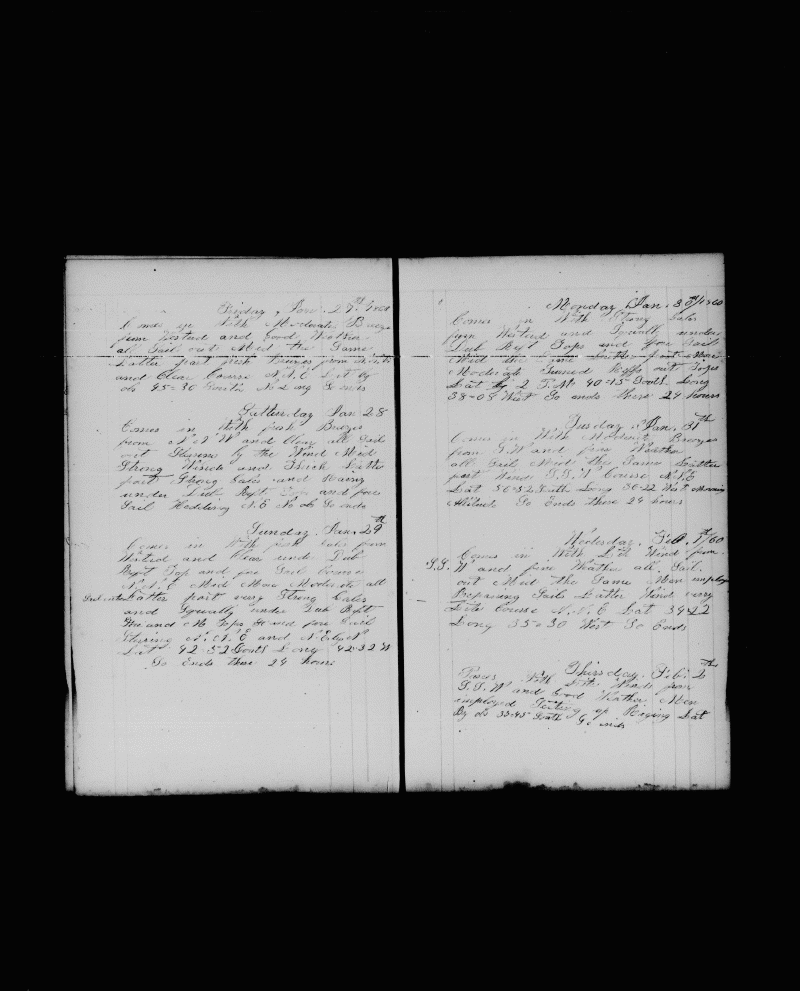 Friday, Jan. 27th 1860
Comes in With Moderate Breeze
from Westard and Good Weather
all Sail out Med the Same
Latter part fresh Breezes from
and Clear Course N.N.E Lat by
ob 45=30 South No Long So ends
Satturday Jan 28
Comes in With fresh Breezes
from N.N.W and Clear all Sail
out Stering by the Wind Med
Strong Winds and Thick Latter
part Strong Gales and Rainy
under Dub. Reft. Tops and fore
Sail Hedding N.E No ob So ends
Sunday. Jan. 29th
Comes in With fresh Gales from
Westard and Clear under Dub
Reft Top and fore Sail Course
N.N.E Med More Moderate all
Latter part very Strong Gales
and Squally under Dub Reft
and M Tops and fore Sail
Stering N.N.E and N.E by N
Lat 42=52 South Long 42=32 W
So Ends these 24 hours
Monday Jan. 30th/1860
Comes in With Strong Gales
from Westard and Squally under
Dub Reft Tops and fore Sail
Med the Same Latter part More
Moderate Turned Riffs out Tops
Lat by 2 40=15 South Long
38=08 West So ends these 24 hours
Tusday. Jan. 31th
Comes in With Moderate Breezes
from S.W and fine Weather
all Sail Med the Same Latter
part Wind S.S.W Course N.N.E
Lat South Long 36=22 West
So Ends these 24 hours
Wedesday. Feb. 1st/60
Comes in With Lit Wind from
S.S. W and fine Weather all Sail.
out Med the Same Men employ
Repairing Sails Latter Wind very
Lite Course N.N.E Lat 34=22
Long 35=30 West So Ends
Thirsday. Feb. 2th
With Lite Winds from
S.S.W and Good Weather Men
employed Seting up Riging Lat
By ob 33=45 South So ends